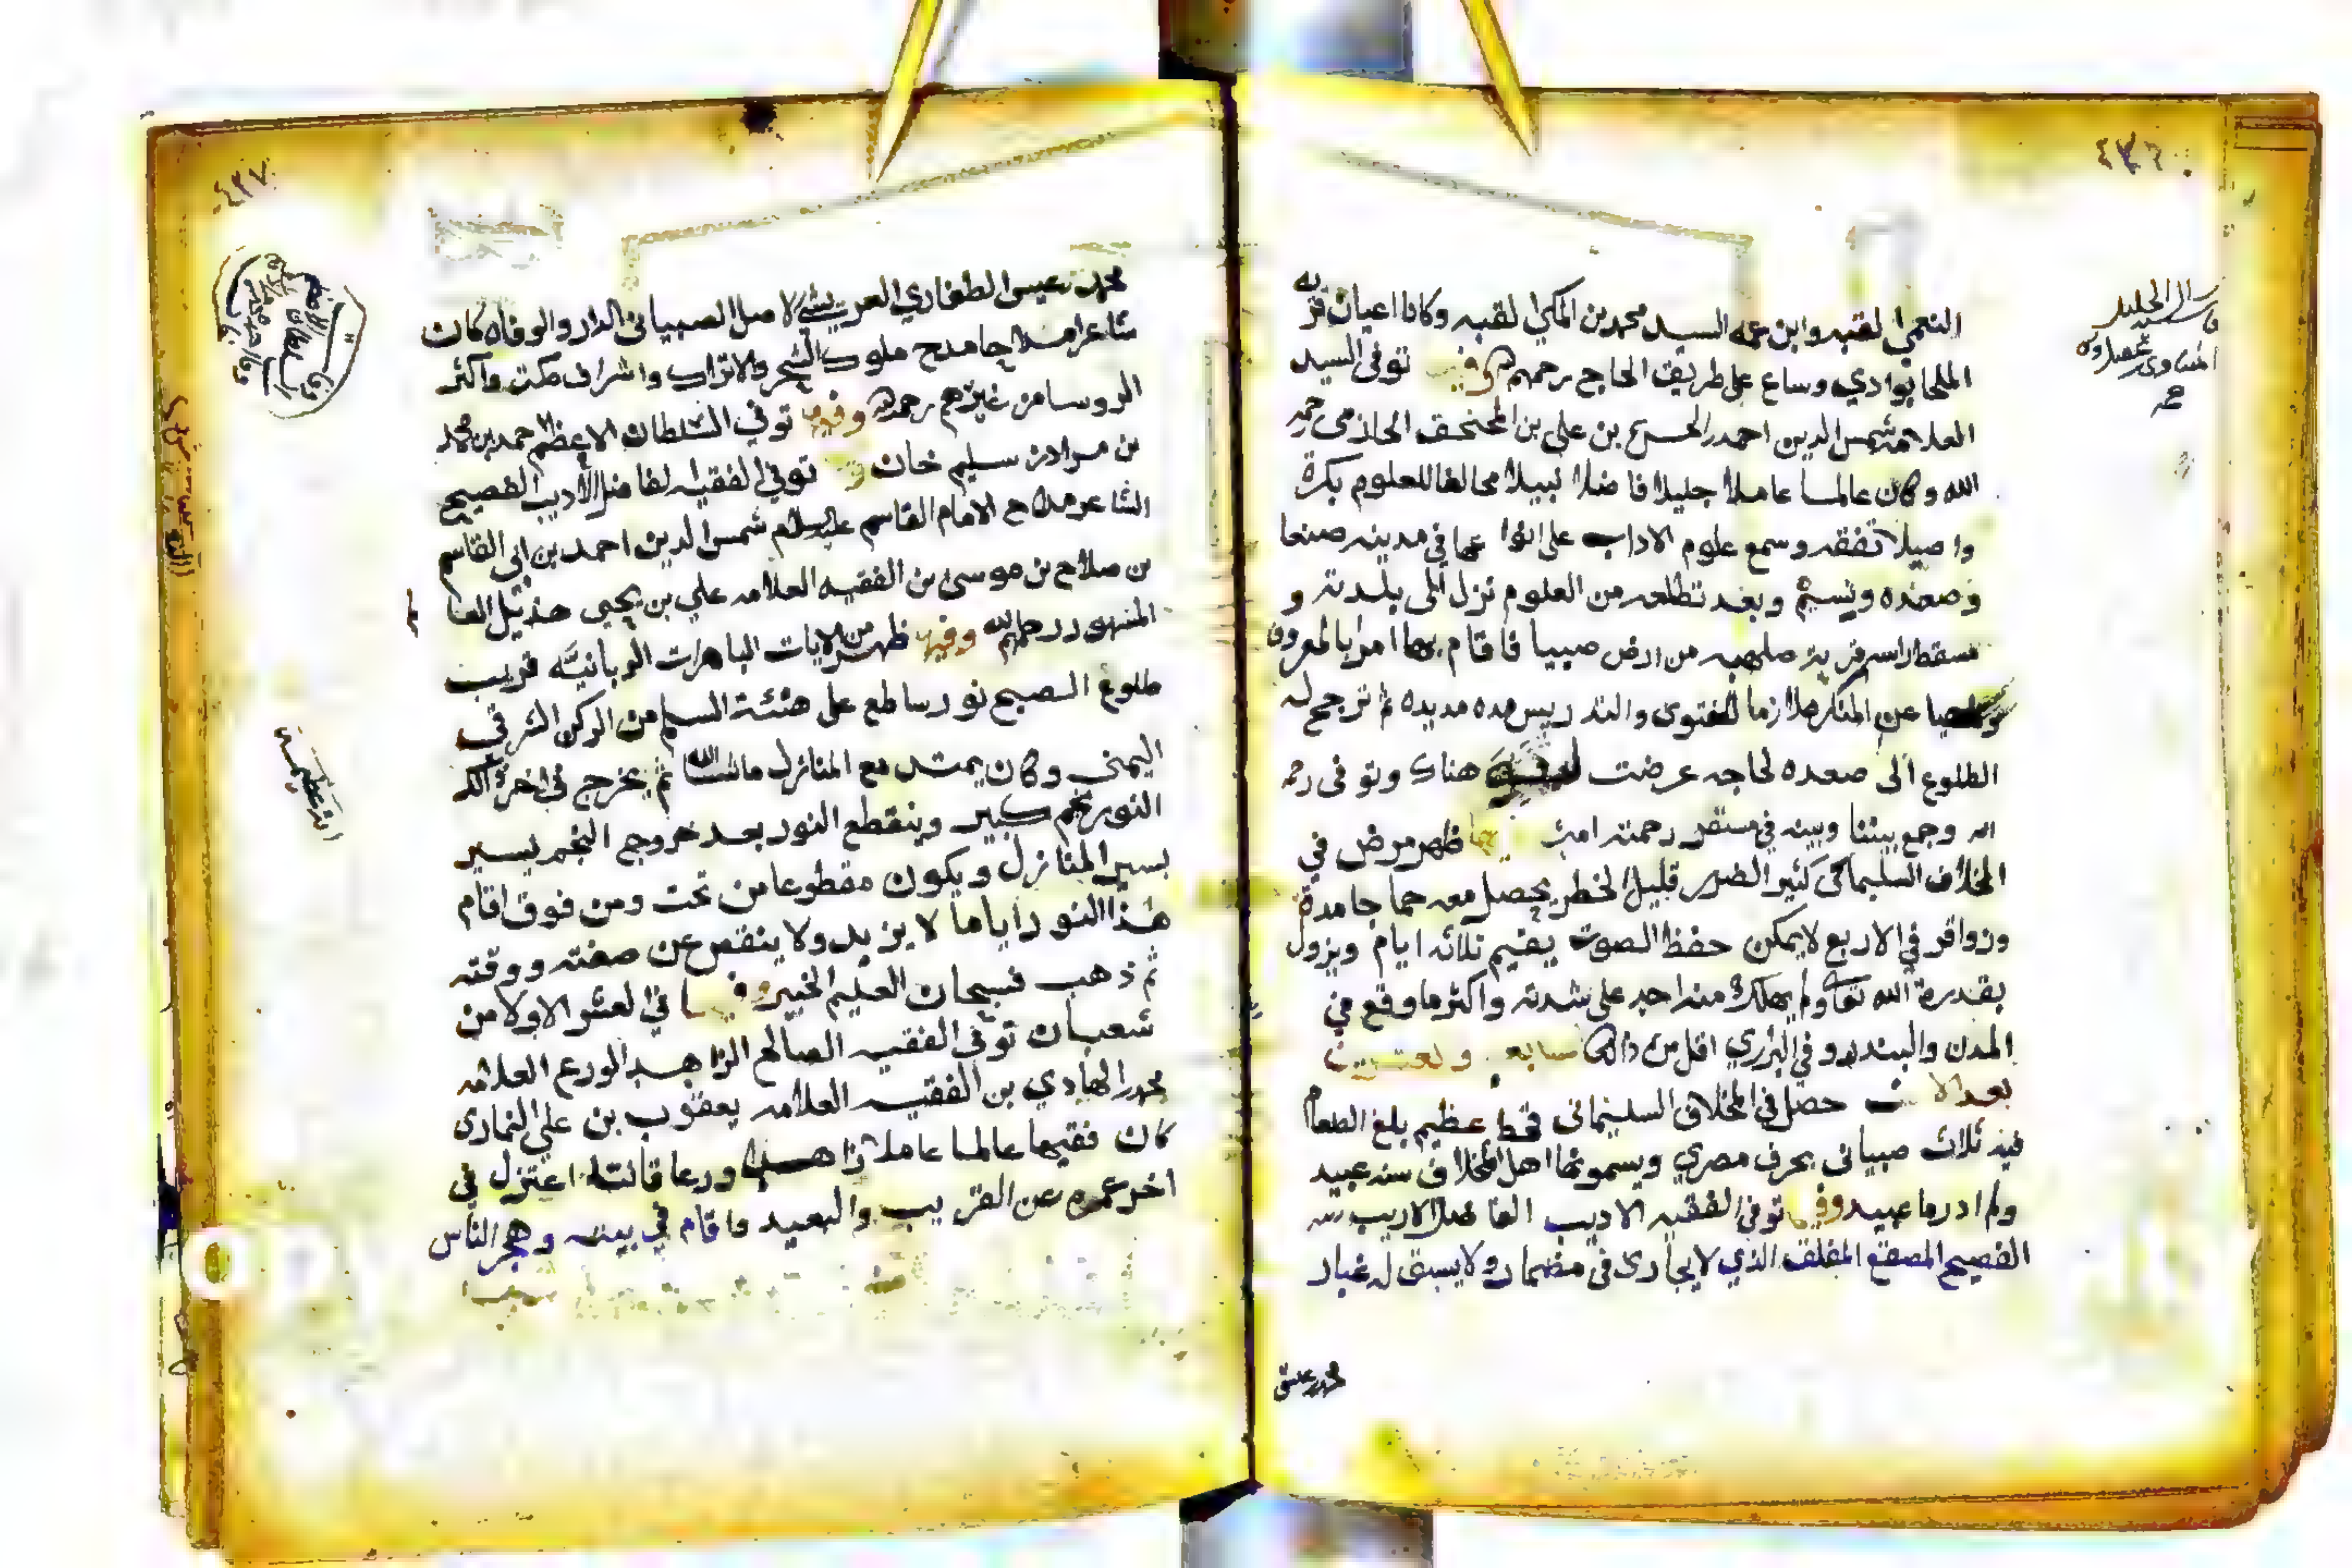 ٤٣٦
النعمي لقبه وابن عمه السيد محمد بن المكي لقبه وكانا اعيان قريه
الملحا بوادي وساع على طريق الحاج رحمهم الله وفيها توفى السيد
العلامه شمس الدين احمد بن الحسن بن علي بن الحازمى رحمه
الله وكان عالما عاملا جليلا فاضلا نبيلا محالفا للعلوم بكرة
واصيلا تفقه وسمع علوم الاداب على انواعها في مدينه صنعا
وصعده وبعد تطلعه من العلوم نزل الى بلدته و
مسقط راسه قرية صلهبه من ارض صبيا فاقام بها امرا بالمعروف
وناهيا عن المنكر ملازما للفتوى والتدريس مده مديده ثم ترجح له
الطلوع الى صعده لحاجه عرضت هناك وتوفى رحمه
الله وجمع بيننا وبينه في مستقر رحمته امين ظهر مرض في
المخلاف السليماني كثير الضرر قليل الخطر يحصل معه حما جامدة
وزواقر في الاربع لا يمكن حفظ الصوت يقيم ثلاثه ايام ويزول
بقدرة الله تعالى ولم يهلك منه احد على شدته واكثر ما وقع في
المدن والبندر وفي البراري اقل من ذالك سابعه وعشرين
بعد الالف حصل في المخلاف السليماني قحط عظيم بلغ الطعام
فيه ثلاث صبياني بحرف مصري ويسمونها اهل المخلاف سنه عبيد
ولم ادر ما عبيد وفيها توفي الفقيه الاديب الفاضل الاريب
الفصيح المصقع المفلق الذي لا يجارى في مضمار ولا يسبق له غبار
محمد بن عيسى
٤٣٧
محمد بن عيسى الطفاري العريشي الاصل الصبياني الدار والوفاه كان
شاعرا فاضلا مدح ملوك الشحر والاتراك واشراف مكة واكثر
الروسا من غيرهم رحمه الله وفيها توفي السلطان الاعظم احمد بن محمد
بن مراد بن سليم خان توفي الفقيه الفاضل الاديب الفصيح
الشاعر مداح الامام القاسم عليه السلام شمس الدين احمد بن ابي القاسم
بن صلاح بن موسى بن الفقيه العلامه علي بن يحيى
المشهور رحمهم الله وفيها ظهر من الايات الباهرات الربانيه قريب
طلوع الصبح نور ساطع على هئئة السلم من الركن الشرقي
اليمني وكان يمتد مع المنازل ماشا الله ثم يخرج في اخر ذالك
النور نجم كبير وينقطع النور بعد خروج النجم يسير
بسير المنازل ويكون مقطوعا من تحت ومن فوق اقام
هذا النور اياما لا يزيد ولا ينقص عن صفته ووقته
ثم ذهب فسبحان العليم الخبير وفيها في العشر الاولا من
شعبان توفي الفقيه الصالح الزاهد الورع العلامه
محمد الهادي بن الفقيه العلامه يعقوب بن علي النمازى
كان فقيها عالما عاملا زاهدا ورعا قانتا اعتزل في
اخر عمره عن القريب والبعيد واقام في بيته وهجر الناس